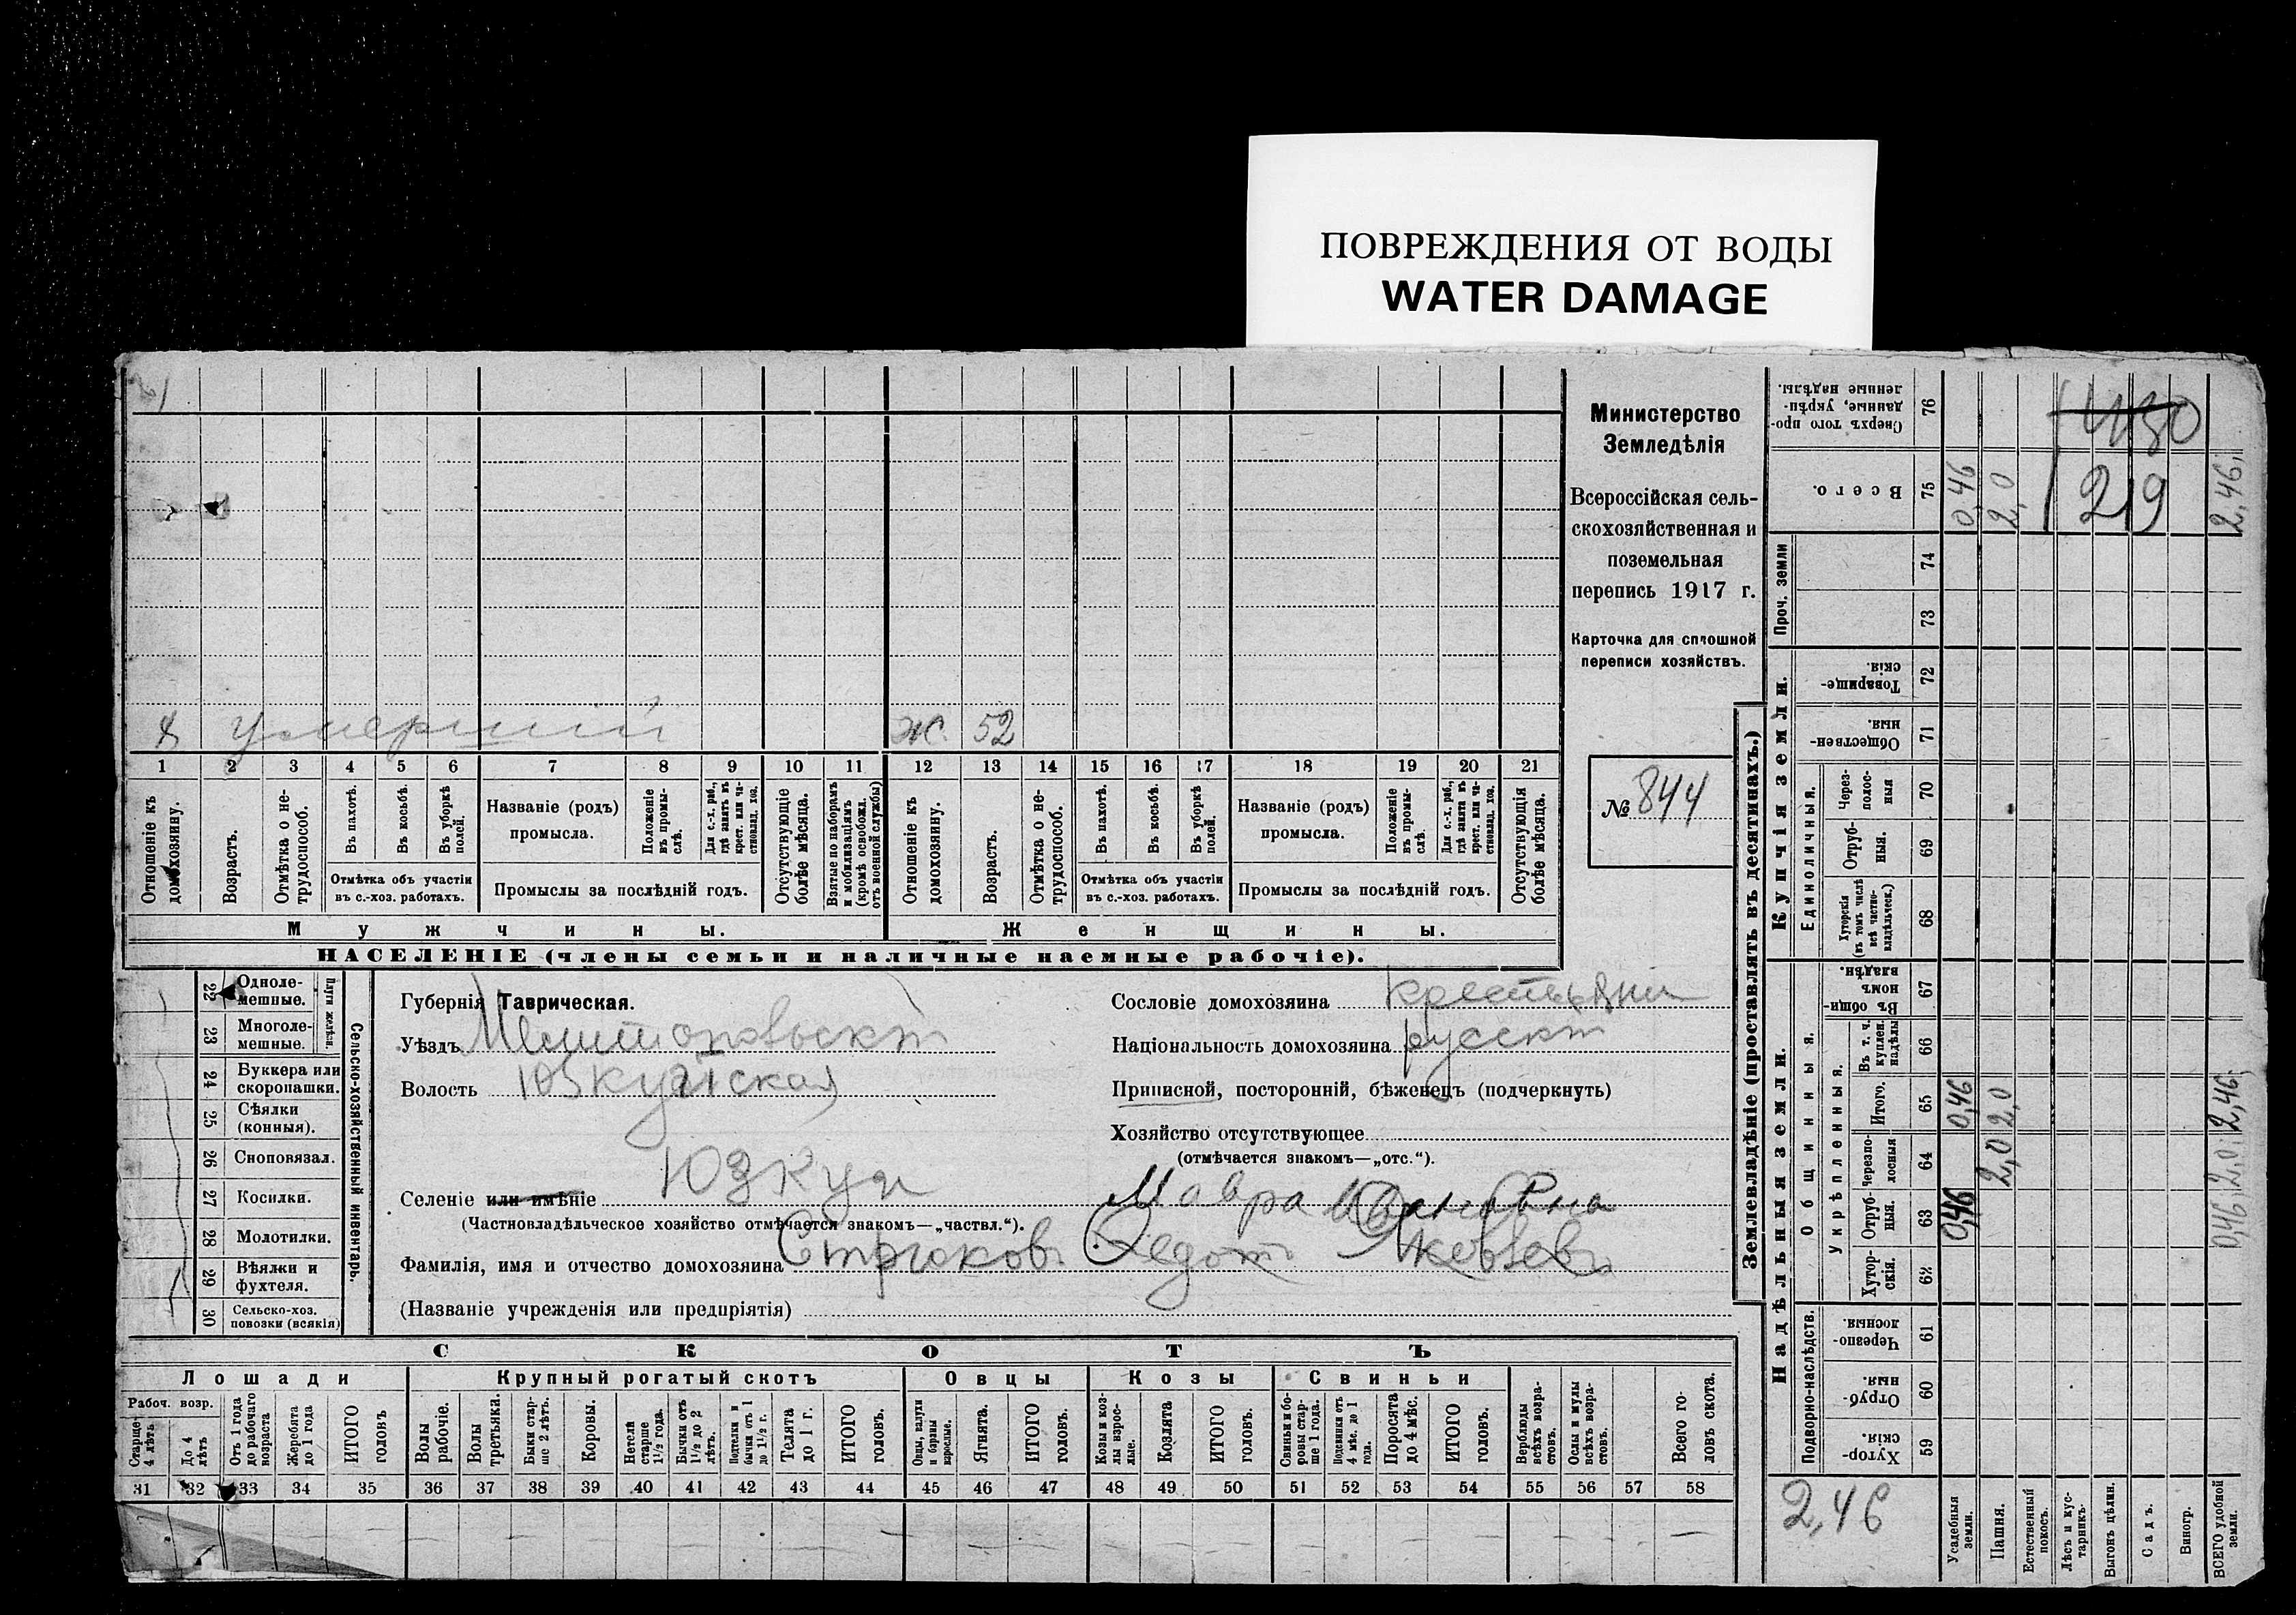 ПОВРЕЖДЕНИЯ ОТ ВОДЫ
WATER DAMAGE
Министерство
Земледѣлія
Всероссійская сель-
скохозяйственная и
поземельная
перепись 1917 г.
Карточка для сплошной
переписи хозяйствъ.
№ 844
умершій
ж. 52
1 2 3 4 5 6 7 8 9 10 11 12 13 14 15 16 17 18 19 20 21
Отношеніе къ домохозяину.
Возрастъ.
Отмѣтка о не-трудоспособ.
Въ пахотѣ.
Въ косьбѣ.
Въ уборкѣ полей.
Отмѣтка объ участіи
въ с.-хоз. работахъ.
Названіе (родъ)
промысла.
Положеніе въ промы-слѣ.
Для с.-х. раб., гдѣ занятъ въ крест. или ча-стновлад. хоз.
Промыслы за послѣдній годъ.
Отсутствующіе болѣе мѣсяца.
Взятые по наборамъ и мобилизаціямъ (кромѣ освобожд. отъ военной службы)
Отношеніе къ домохозяину.
Возрастъ.
Отмѣтка о не-трудоспособ.
Въ пахотѣ.
Въ косьбѣ.
Въ уборкѣ полей.
Отмѣтка объ участіи
въ с.-хоз. работахъ.
Названіе (родъ)
промысла.
Положеніе въ промы-слѣ.
Для с.-х. раб., гдѣ занята въ крест. или ча-стновлад. хоз.
Промыслы за послѣдній годъ.
Отсутствующія болѣе мѣсяца.
Мужчины.
Женщины.
НАСЕЛЕНІЕ (члены семьи и наличные наемные рабочіе).
22 Одноле-мешные.
23 Многоле-мешные.
Плуги желѣзн.
24 Буккера или скоропашки.
25 Сѣялки (конныя).
26 Сноповязал.
27 Косилки.
28 Молотилки.
29 Вѣялки и фухтеля.
30 Сельско-хоз. повозки (всякія)
Сельско-хозяйственный инвентарь.
Губернія Таврическая.
Уѣздъ Мелитопольскій
Волость Юзкуйская
Селеніе или имѣніе Юзкуи
(Частновладѣльческое хозяйство отмѣчается знакомъ—„частвл.“).
Фамилія, имя и отчество домохозяина Стрюковъ Федотъ Яковлевъ
(Названіе учрежденія или предпріятія)
Сословіе домохозяина крестьянин
Національность домохозяина русскій
Приписной, посторонній, бѣженецъ (подчеркнуть)
Хозяйство отсутствующее
(отмѣчается знакомъ—„отс.“).
Мавра Ивановна
СКОТЪ
Лошади
Крупный рогатый скотъ
Овцы
Козы
Свиньи
Рабоч. возр.
Старше 4 лѣтъ
До 4 лѣтъ
Отъ 1 года до рабочаго возраста
Жеребята до 1 года
ИТОГО головъ
Волы рабочіе.
Волы третьяки.
Быки стар-ше 2 лѣтъ.
Коровы.
Нетели старше 1½ года.
Бычки отъ 1½ до 2 лѣтъ.
Подтелки и бычки отъ 1 до 1½ г.
Телята до 1 г.
ИТОГО головъ.
Овцы, валухи и бараны взрослые.
Ягнята.
ИТОГО головъ.
Козы и коз-лы взрос-лые.
Козлята
ИТОГО головъ.
Свиньи и бо-ровы стар-ше 1 года.
Подсвинки отъ 4 мѣс. до 1 года.
Поросята до 4 мѣс.
ИТОГО головъ.
Верблюды всѣхъ возра-стовъ.
Ослы и мулы всѣхъ возра-стовъ.
Всего го-ловъ скота.
31 32 33 34 35 36 37 38 39 40 41 42 43 44 45 46 47 48 49 50 51 52 53 54 55 56 57 58
Землевладѣніе (проставлять въ десятинахъ.)
Купчія земли.
Надѣльныя земли.
Проч. земли
Единоличныя.
Общинныя.
Укрѣпленныя.
Подворно-наслѣдств.
Сверхъ того про-данные, укрѣп-ленные надѣлы. 76
Всего. 75 0,46 2,0 2,46
74
73
Товарище-скія. 72
Обществен-ныя. 71
Через-полос-ныя 70
Отруб-ныя. 69
Хуторскія (въ томъ числѣ всѣ частно-владѣльческ.) 68
Въ общи-номъ владѣн. 67
Въ т. ч. куплен. надѣлы 66
Итого. 65 0,46 2,0 2,46
Черезпо-лосныя 64 2,0 2,0
Отруб-ныя. 63 0,46 0,46
Хутор-скія. 62
Черезпо-лосныя. 61
Отруб-ныя. 60
Хутор-скія. 59
219
2,46
Усадебныя земли.
Пашня.
Естественный покосъ.
Лѣсъ и кус-тарникъ.
Выгонъ цѣлин.
Садъ.
Виногр.
ВСЕГО удобной земли.